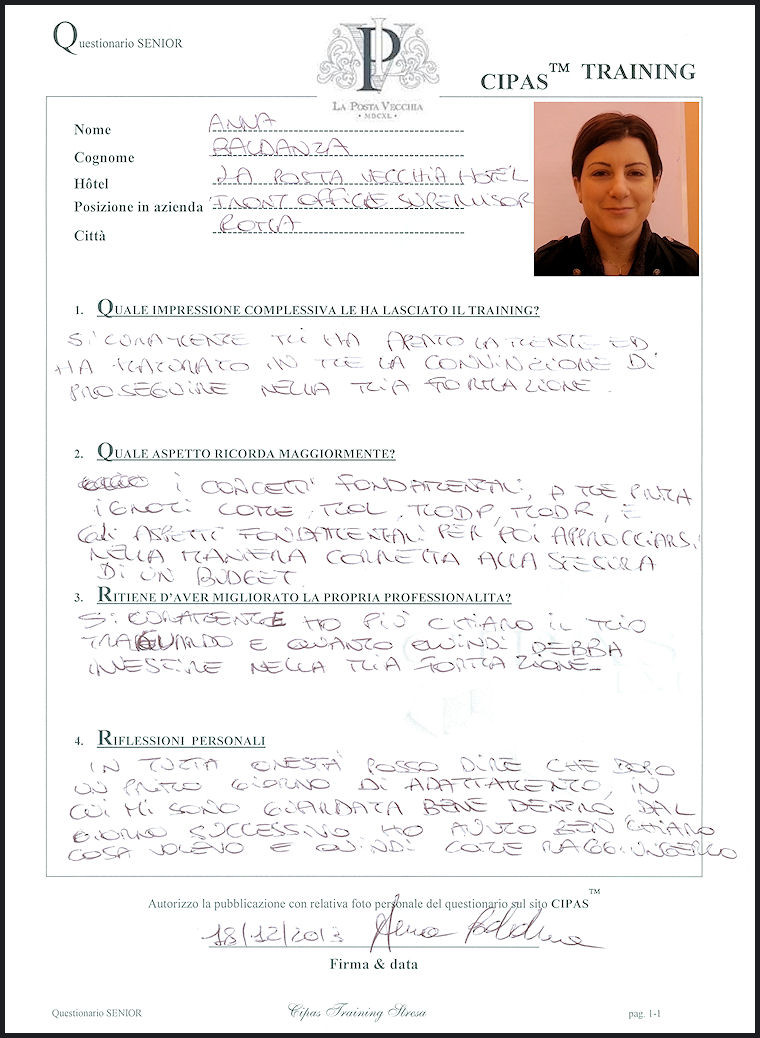 Questionario SENIOR
PV
LA POSTA VECCHIA
• MDCXL •
CIPAS™ TRAINING
Nome ANNA
Cognome BALDANZA
Hôtel LA POSTA VECCHIA HOTEL
Posizione in azienda FRONT OFFICE SUPERVISOR
Città ROMA
1. QUALE IMPRESSIONE COMPLESSIVA LE HA LASCIATO IL TRAINING?
SICURAMENTE MI HA APERTO LA MENTE ED
HA MATURATO IN ME LA CONVINZIONE DI
PROSEGUIRE NELLA MIA FORMAZIONE.
2. QUALE ASPETTO RICORDA MAGGIORMENTE?
I CONCETTI FONDAMENTALI, A ME PRIMA
IGNOTI COME, MOL, MODP, MODR, E
GLI ASPETTI FONDAMENTALI PER POI APPROCCIARSI
NELLA MANIERA CORRETTA ALLA STESURA
DI UN BUDGET.
3. RITIENE D'AVER MIGLIORATO LA PROPRIA PROFESSIONALITA?
SICURAMENTE HO PIÙ CHIARO IL MIO
TRAGUARDO E QUANTO QUINDI DEBBA
INVESTIRE NELLA MIA FORMAZIONE_
4. RIFLESSIONI PERSONALI
IN TUTTA ONESTÀ POSSO DIRE CHE DOPO
UN PRIMO GIORNO DI ADATTAMENTO, IN
CUI MI SONO GUARDATA BENE DENTRO DAL
GIORNO SUCCESSIVO HO AVUTO BEN CHIARO
COSA VOLEVO E QUINDI COME RAGGIUNGERLO
Autorizzo la pubblicazione con relativa foto personale del questionario sul sito CIPAS™
18/12/2013 Anna Baldanza
Firma & data
Questionario SENIOR
Cipas Training Stresa
pag. 1-1